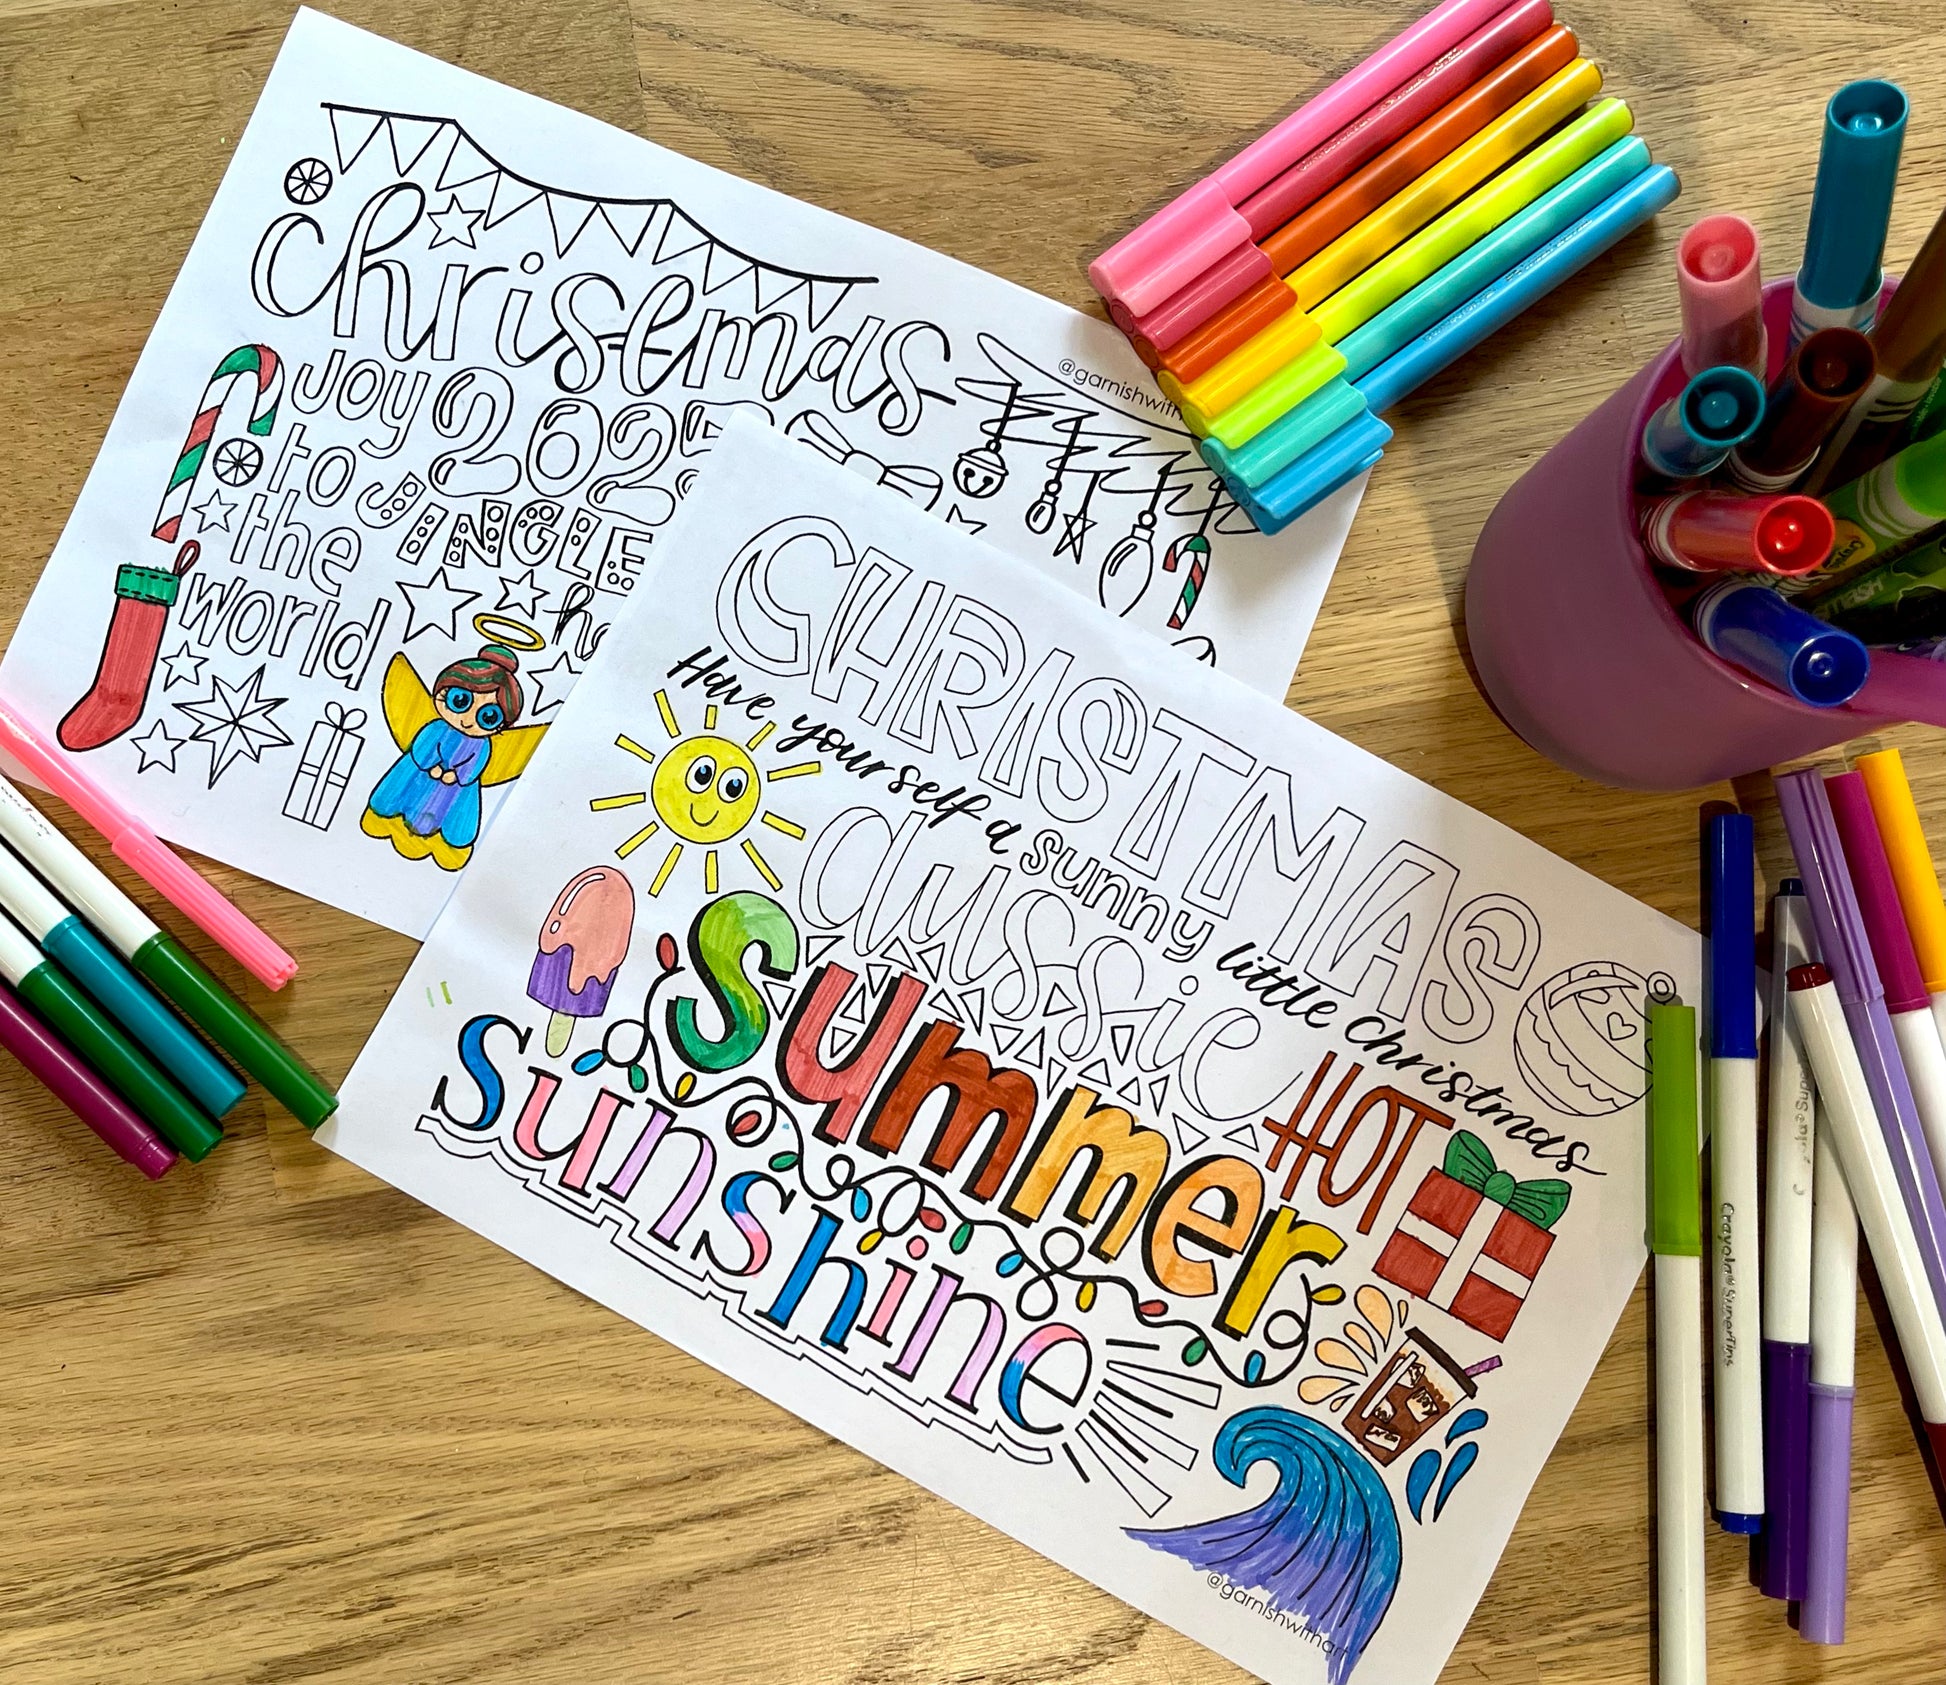 Christmas
@garnishwith
Joy
202
to
JINGLE
the
world
CHRISTMAS
Have yourself a sunny little christmas
aussie
Summer
HOT
sunshine
@garnishwithart
Crayola SuperTips